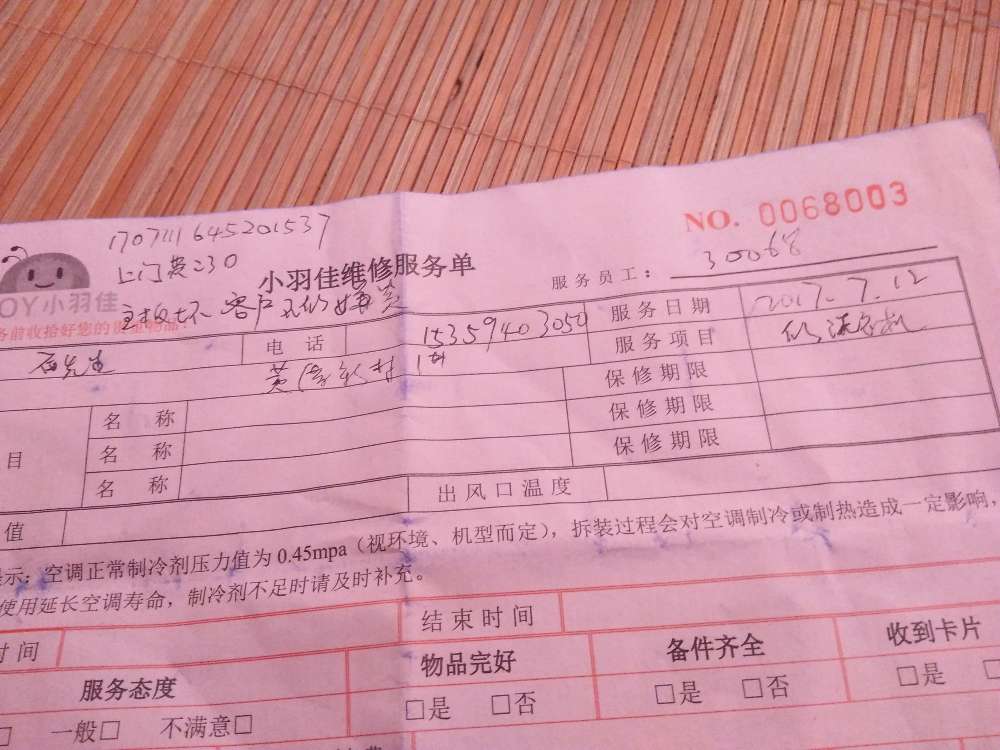 NO. 0068003
1707111645201537
上门费:30
小羽佳维修服务单
服务员工: 30068
OY小羽佳
主板坏 客户不修
务前收拾好您的
电话 15359403050 服务日期 2017.7.12
服务项目
保修期限
名称 保修期限
名称 保修期限
名称
目
出风口温度
值
示:空调正常制冷剂压力值为 0.45mpa(视环境、机型而定),拆装过程会对空调制冷或制热造成一定影响,
使用延长空调寿命,制冷剂不足时请及时补充。
时间 结束时间
服务态度 物品完好 备件齐全 收到卡片
□ 一般□ 不满意□ □是 □否 □是 □否 □是 □